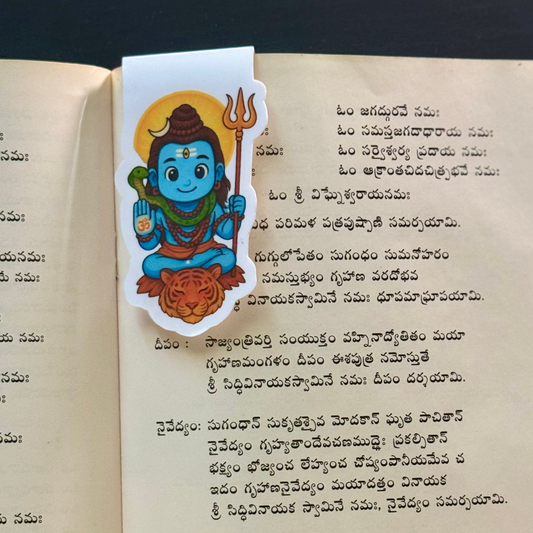 నమః
మః
యనమః
మే నమః
నమః
నమః
ఓం జగద్గురవే నమః
ఓం సమస్తజగదాధారాయ నమః
నమః
ఓం సర్వైశ్వర్య ప్రదాయ నమః
ఓం ఆక్రాంతచిదచిత్ప్రభవే నమః
ఓం శ్రీ విఘ్నేశ్వరాయనమః
పరిమళ పత్రపుష్పాణి సమర్పయామి.
గుగ్గులోపేతం సుగంధం సుమనోహరం
నమస్తుభ్యం గృహాణ వరదోభవ
వినాయకస్వామినే నమః ధూపమాఘ్రాపయామి.
ॐ
దీపం : సాజ్యంత్రివర్తి సంయుక్తం వహ్నినాద్యోతితం మయా
గృహాణమంగళం దీపం ఈశపుత్ర నమోస్తుతే
శ్రీ సిద్ధివినాయకస్వామినే నమః దీపం దర్శయామి.
నైవేద్యం: సుగంధాన్ సుకృతశ్చైవ మోదకాన్ ఘృత పాచితాన్
నైవేద్యం గృహ్యతాందేవచణముద్గైః ప్రకల్పితాన్
భక్ష్యం భోజ్యంచ లేహ్యంచ చోష్యంపానీయమేవ చ
ఇదం గృహాణనైవేద్యం మయాదత్తం వినాయక
శ్రీ సిద్ధివినాయక స్వామినే నమః, నైవేద్యం సమర్పయామి.